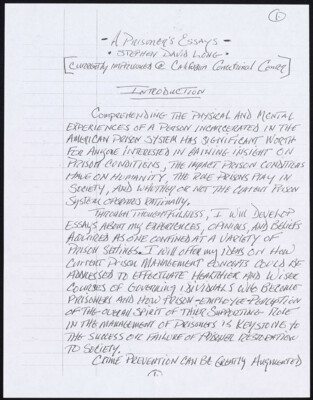 1
- A Prisoner's Essays -
• Stephen David Long •
[Currently Imprisoned @ California Correctional Center]
Introduction
Comprehending the physical and mental
experiences of a person incarcerated in the
American prison system has significant worth
for anyone interested in gaining insight on
prison conditions, the impact prison conditions
have on humanity, the role prisons play in
society, and whether or not the current prison
system operates rationally.
Through thoughtfulness, I will develop
essays about my experiences, opinions, and beliefs
acquired as one confined at a variety of
prison settings. I will offer my ideas on how
current prison management concepts could be
addressed to effectuate healthier and wiser
courses of governing individuals who become
prisoners and how prison-employee perception
of the overall spirit of their supporting role
in the management of prisoners is keystone to
the success or failure of prisoner restoration
to society.
Crime prevention can be greatly augmented
1.